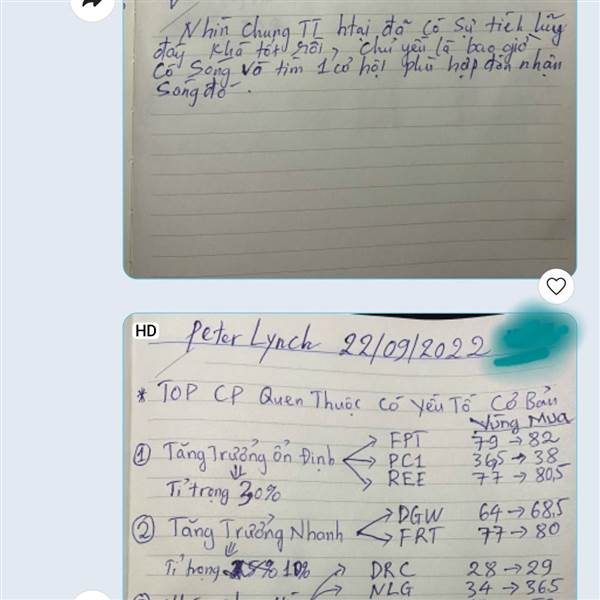 Nhìn chung TT htại đã có sự tích lũy
đáy khá tốt rồi, chủ yếu là bao giờ
có sóng và tìm 1 cơ hội phù hợp đón nhận
sóng đó.
HD
Peter Lynch 22/09/2022
* TOP CP Quen Thuộc có yếu tố Cơ Bản
Vùng Mua
① Tăng Trưởng Ổn Định → FPT 79 → 82
→ PC1 36,5 → 38
→ REE 77 → 80,5
Tỉ trọng 30%
② Tăng Trưởng Nhanh → DGW 64 → 68,5
→ FRT 77 → 80
Tỉ trọng 10%
DRC 28 → 29
NLG 34 → 36,5